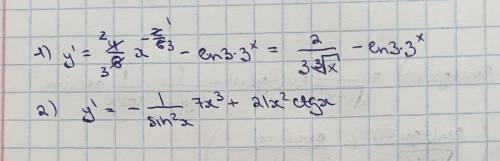 1) y' = 4/6 x^(-2/6) - ln3·3^x = 2/(3·∛x) - ln3·3^x
2) y' = - 1/sin²x 7x³ + 21x² ctgx